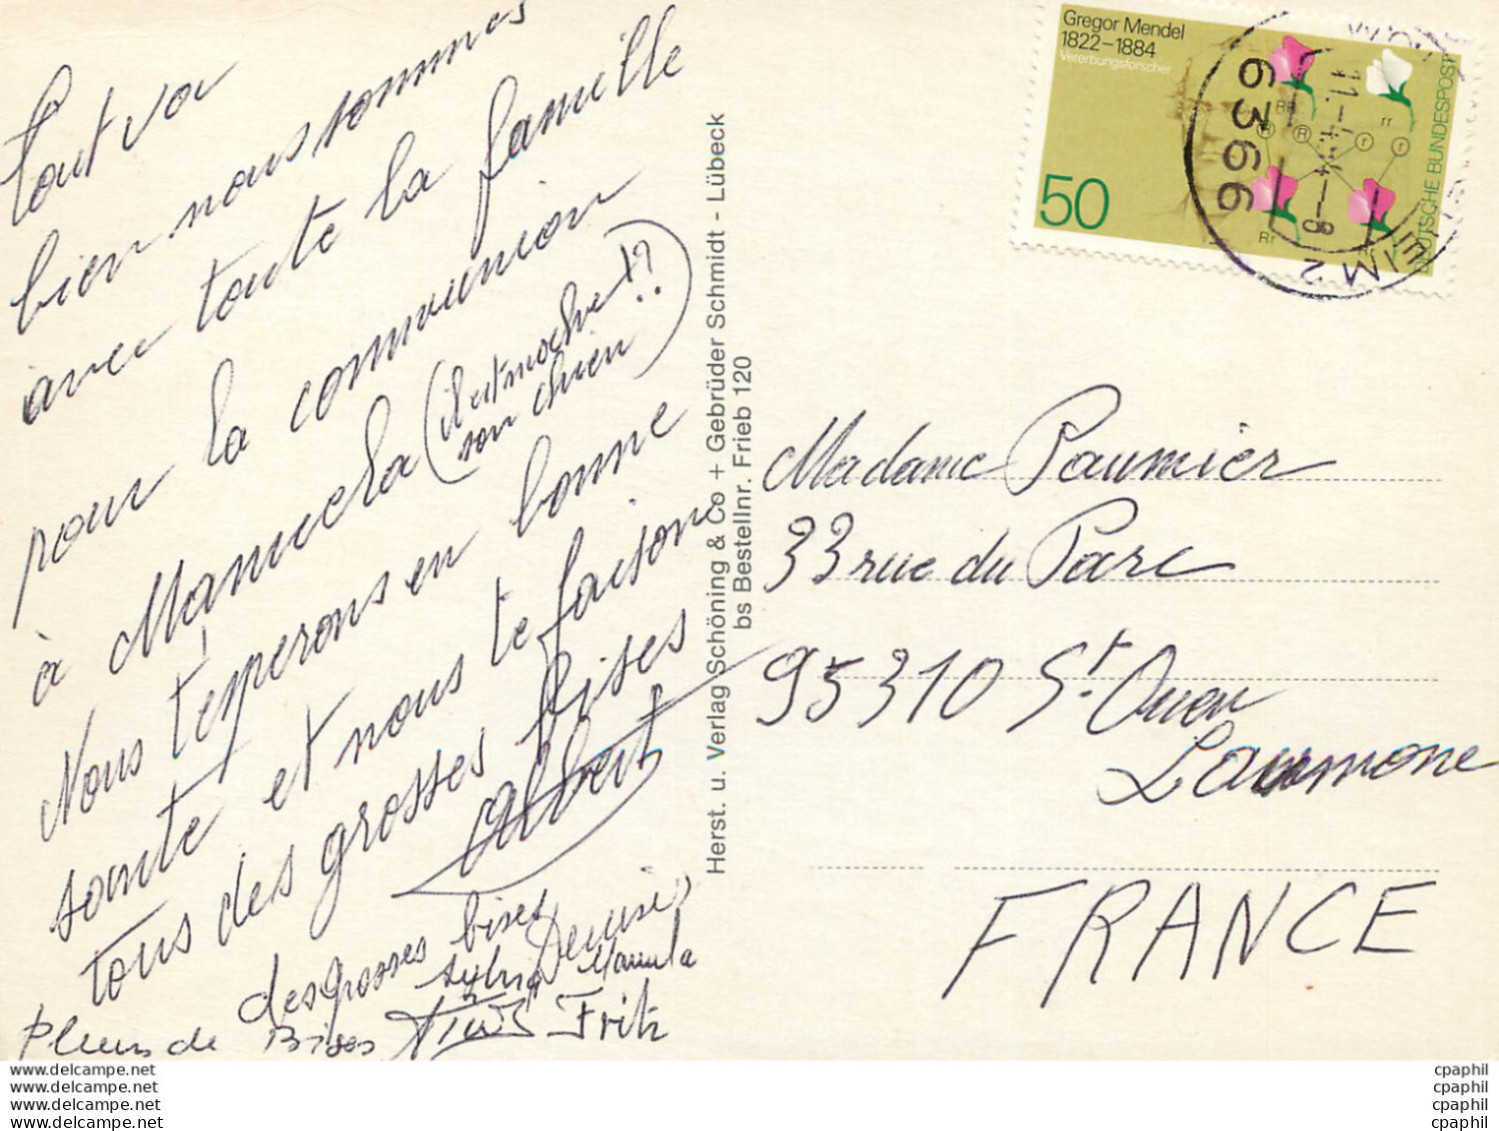 Tout va
bien nous sommes
avec toute la famille
pour la communion
à Manuela (il est moche!??
son chien)
Nous t'esperons en bonne
sante et nous te faisons
tous des grosses bises
Albert
des grosses bises Denise
Sylvia Manuela
Pleins de Bises Fritz
Herst. u. Verlag Schöning & Co + Gebrüder Schmidt - Lübeck
bs Bestellnr. Frieb 120
Gregor Mendel
1822-1884
Vererbungsforscher
RR rr
R R r r
Rr
50
DEUTSCHE BUNDESPOST
6366
11.-4.84-8
2
Madame Paumier
33 rue du Parc
95310 St. Ouen
Laumone
FRANCE
www.delcampe.net
www.delcampe.net
www.delcampe.net
www.delcampe.net
cpaphil
cpaphil
cpaphil
cpaphil